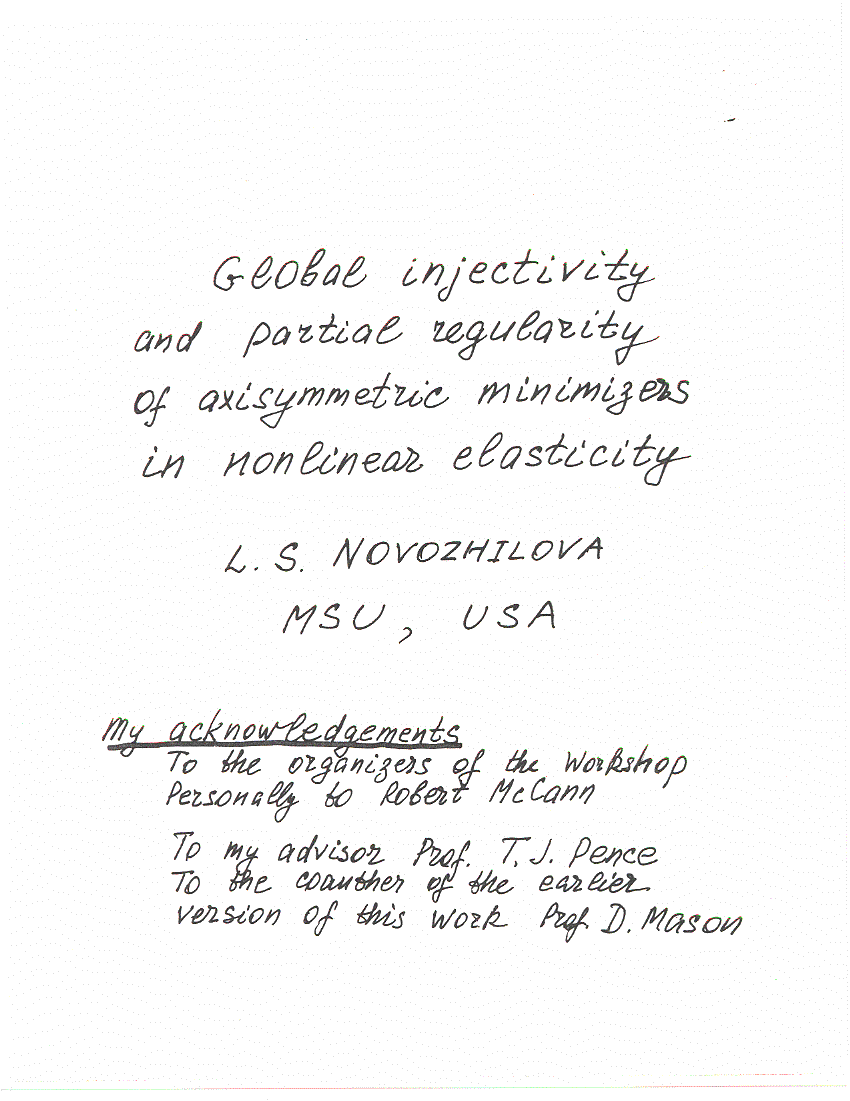 Global injectivity
and partial regularity
of axisymmetric minimizers
in nonlinear elasticity
L. S. NOVOZHILOVA
MSU, USA
My acknowledgements
To the organizers of the Workshop
Personally to Robert McCann
To my advisor Prof. T. J. Pence
To the coauther of the earlier
version of this work Prof. D. Mason